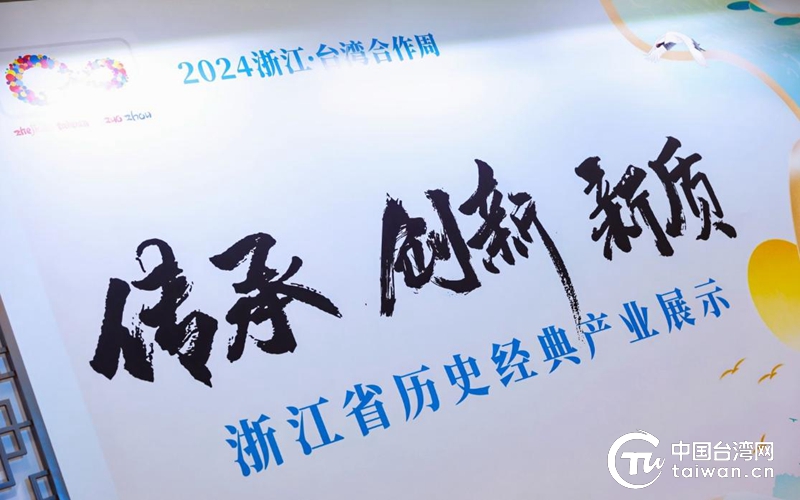 2024浙江·台湾合作周
zhou
传承 创新 新质
浙江省历史经典产业展示
中国台湾网
taiwan.cn